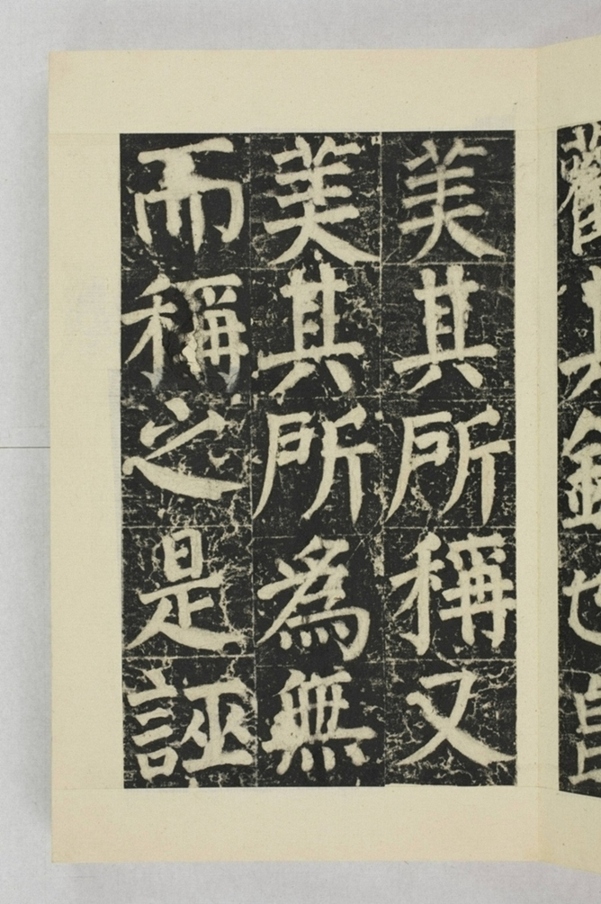 美其所稱又
美其所為無
而稱之是誣